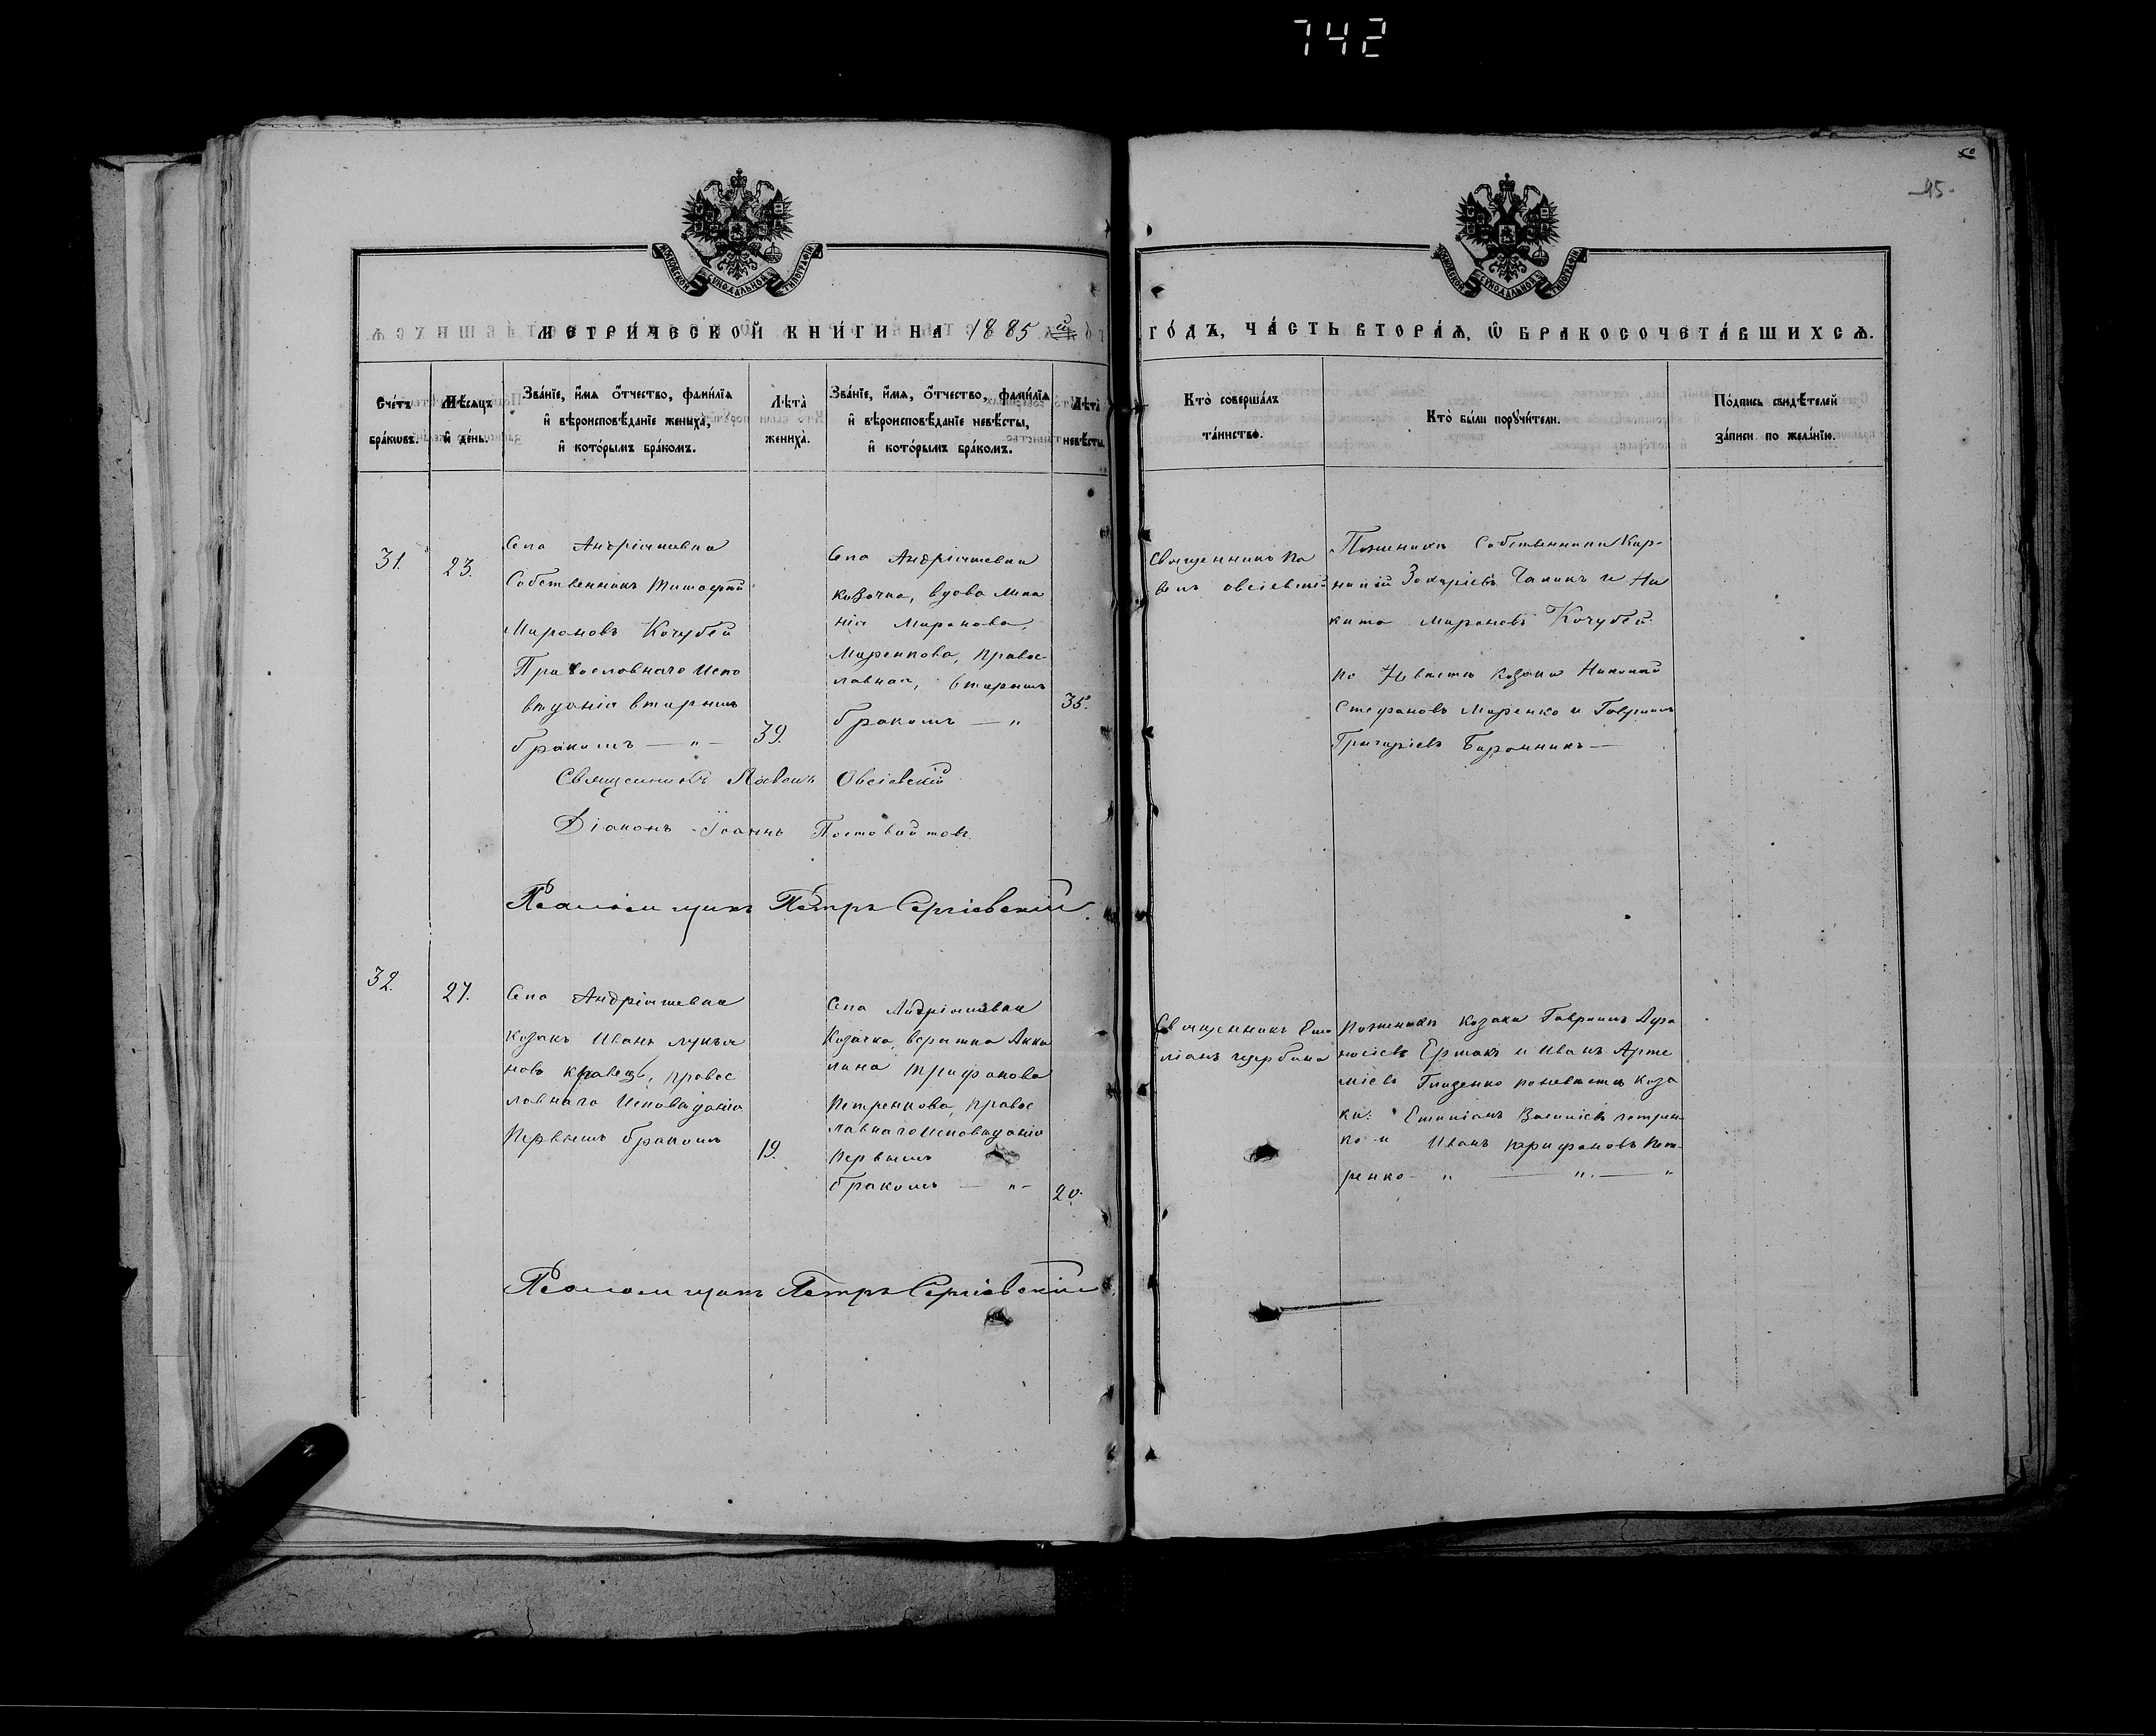 742
50
45.
МОСКОВСКОЙ СѴНОДАЛЬНОЙ ТИПОГРАФІИ
МОСКОВСКОЙ СѴНОДАЛЬНОЙ ТИПОГРАФІИ
МЕТРИ́ЧЕСКОЙ КНИ́ГИ НА 1885й
ГО́ДЪ, ЧА́СТЬ ВТОРА́Ѧ, Ѽ БРАКОСОЧЕТА́ВШИХСѦ.
Сче́тъ
бра́кѡвъ.
Мѣ́сяцъ
и҆ де́нь.
Зва́нїе, и҆́мя ѻ҆́тчество, фами́лїя
и҆ вѣроисповѣ́данїе жениха̀,
и҆ кото́рымъ бра́комъ.
Лѣта̀
жениха̀.
Зва́нїе, и҆́мя, ѻ҆́тчество, фами́лїя
и҆ вѣроисповѣ́данїе невѣ́сты,
и҆ кото́рымъ бра́комъ.
Лѣта̀
невѣ́сты.
Кто̀ соверша́лъ
та́инство.
Кто̀ бы́ли порꙋчи́тели.
По́дпись свидѣ́телей
за́писи по жела́нїю.
31.
23.
Села Андріяшевки
Собственникъ Тимофей
Мироновъ Кочубей
Православнаго Испо
вѣданія вторымъ
бракомъ — „ —
39.
Села Андріяшевки
козачка, вдова
Миронова,
Маренкова, правос
лавная, вторымъ
бракомъ — „
35.
Священникъ Па
велъ Овсіевскій
Поженихѣ Собственники Кор-
нилій Захаріевъ и Ни
кита Мироновъ Кочубей.
по Невѣстѣ козаки Николай
Стефановъ Маренко и Гавриилъ
Григоріевъ —
Священникъ Павелъ Овсіевскій
Діаконъ Іоаннъ
Псаломщикъ Петръ Сергіевскій.
32.
27.
Села Андріяшевки
козакъ Иванъ Лукья
новъ Кравецъ, правос
лавнаго Исповѣданія
Первымъ бракомъ
19.
Села Андріяшевки
Козачка,
Трифонова
Петренкова, правос
лавнаго исповѣданія
первымъ
бракомъ — „ —
20.
Священникъ Еми
ліанъ Щербина
поженихѣ козаки Гавриилъ Афа
насіевъ Ермакъ и Иванъ Арте
міевъ Гладенко поневѣстѣ коза
ки: Емиліанъ Василіевъ Петрен
ко и Иванъ Трифоновъ Пет-
ренко — „ — „ — „
Псаломщикъ Петръ Сергіевскій